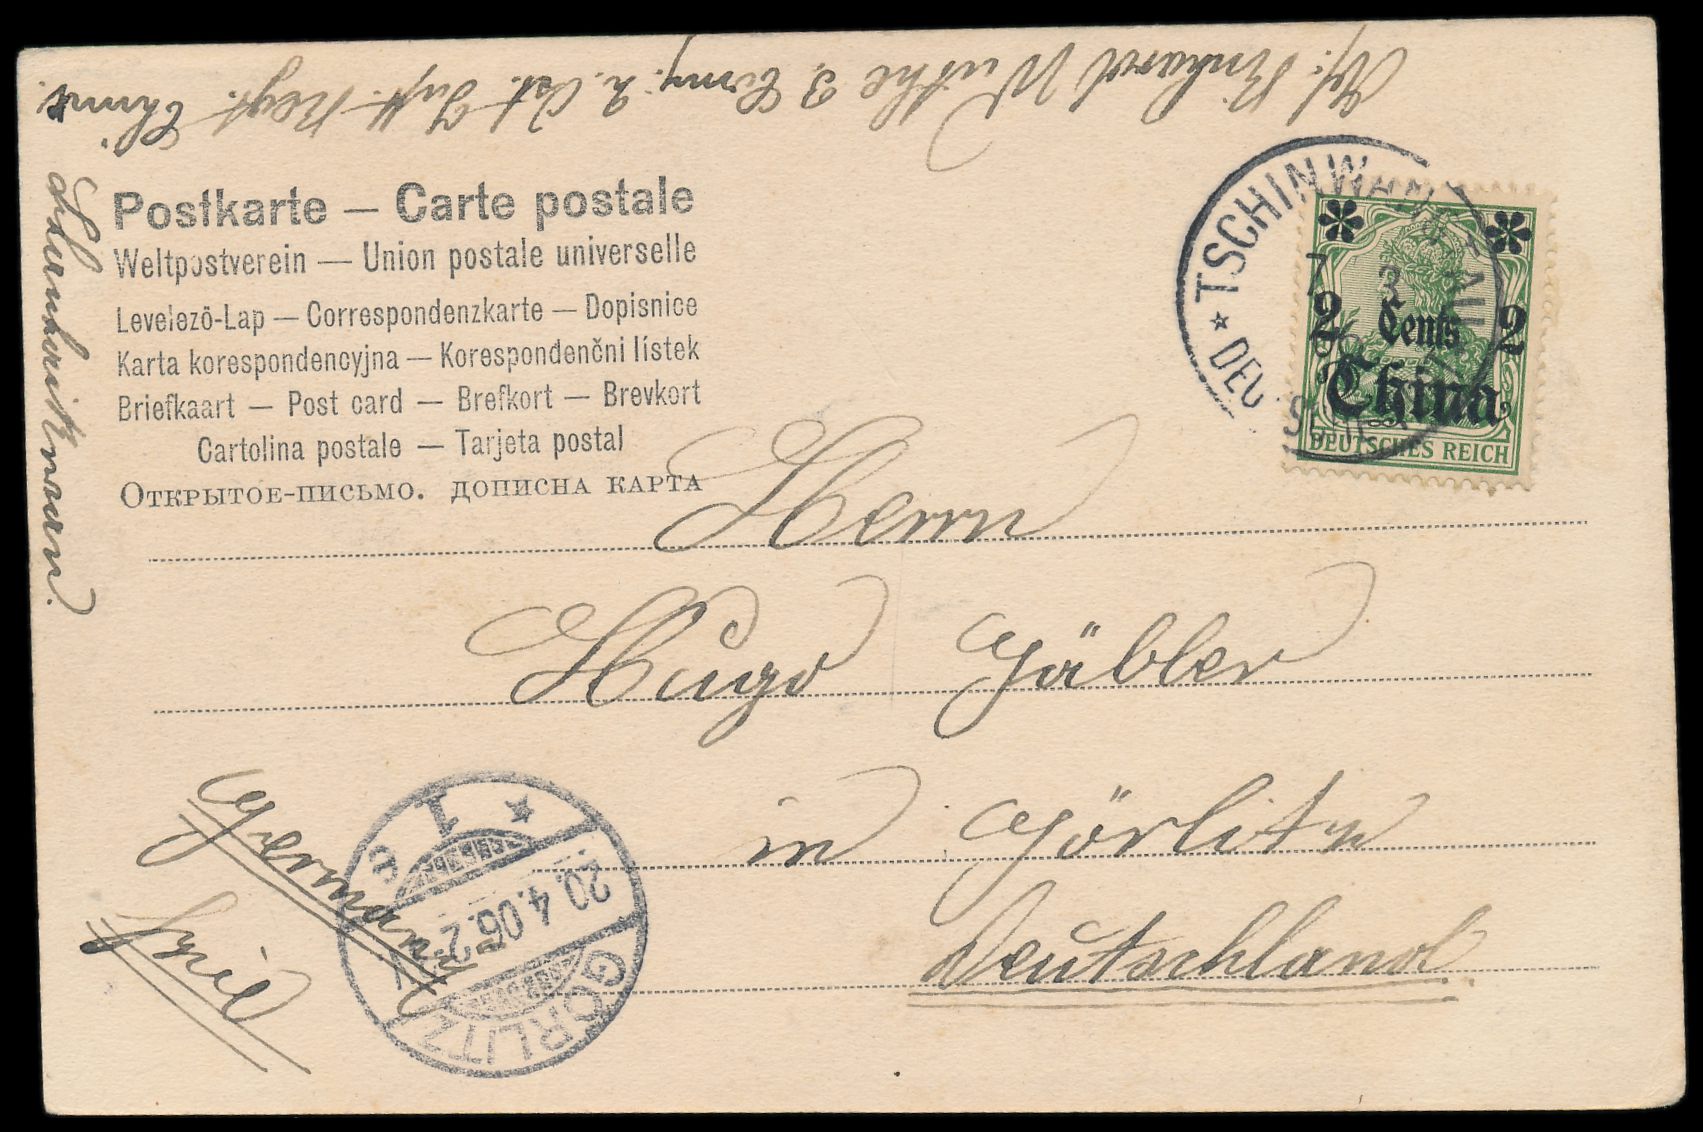 Abs. Rinhard Wuthe 3. Comp. 2. Ost. Inft. Regt. China
Schanheikwan.
Postkarte — Carte postale
Weltpostverein — Union postale universelle
Levelezö-Lap — Correspondenzkarte — Dopisnice
Karta korespondencyjna — Korespondenčni lístek
Briefkaart — Post card — Brefkort — Brevkort
Cartolina postale — Tarjeta postal
Открытое-письмо. дописна карта
* TSCHINWANGTAU
7 3 06
DEUTSCHE
2 Cents 2
China
DEUTSCHES REICH
Herrn
Hugo Gäbler
in Görlitz
Deutschland.
Germani
GÖRLITZ
20.4.06.2
* 1 e